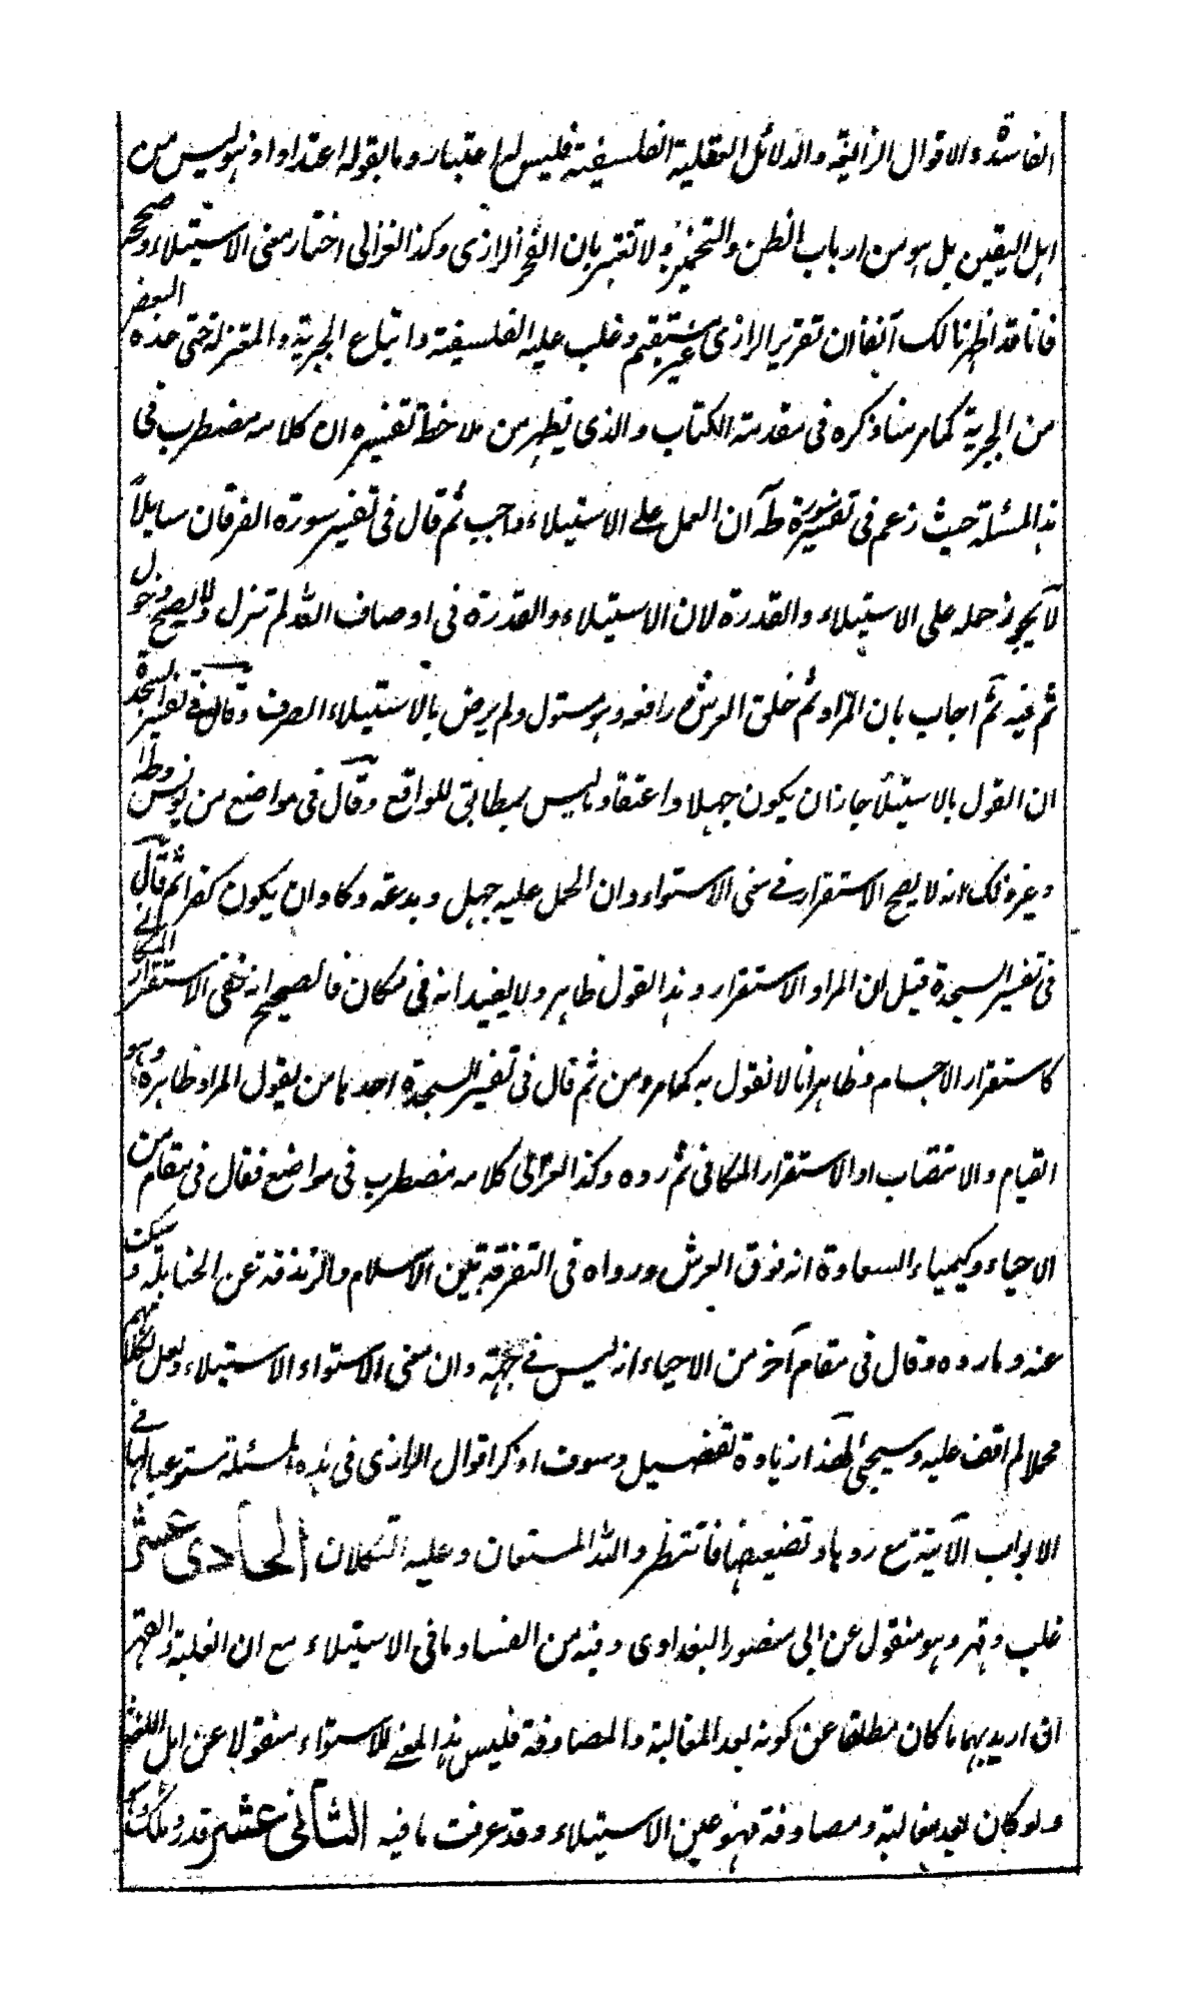 الفاسدة والاقوال الزائغة والدلائل العقلية الفلسفية فليس لها اعتبار وما بقوله اعتداد اذ هو ليس من
اهل اليقين بل هو من ارباب الظن والتخمين ولا تغتر بان الفخر الرازى وكذا الغزالى اختار معنى الاستيلاء وصححه
فانا قد اظهرنا لك آنفا ان تقرير الرازى غير مستقيم وغلب عليه الفلسفية واتباع الجبرية والمعتزلة حتى عده البعض
من الجبرية كما مر منا ذكره فى مقدمة الكتاب والذى يظهر من ملاحظة تفسيره ان كلامه مضطرب فى
هذا المسئلة حيث زعم فى تفسير سورة طه ان العمل على الاستيلاء واجب ثم قال فى تفسير سورة الفرقان سايلاً
لا يجوز حمله على الاستيلاء والقدرة لان الاستيلاء والقدرة فى اوصاف الله لم تزل ولا يصح دخول
ثم فيه ثم اجاب بان المراد ثم خلق العرش رافعه وهو مستول ولم يرض بالاستيلاء الصرف وقال فى تفسير السجدة
ان القول بالاستيلا جاز ان يكون جهلا واعتقاد ما ليس بمطابق للواقع وقال فى مواضع من يونس وطه
وغير ذلك انه لا يصح الاستقرار فى معنى الاستواء وان الحمل عليه جهل وبدعة وكاد ان يكون كفرا ثم قال
فى تفسير السجدة قيل ان المراد الاستقرار وهذا القول ظاهر ولا يفيد انه فى مكان فالصحيح انه نفى الاستقرار المكانى
كاستقرار الاجسام وظاهر انا لا نقول به كما مر ومن ثم قال فى تفسير السجدة احدها من يقول المراد ظاهره وهو
القيام والانتصاب او الاستقرار المكانى ثم رده وكذا الغزالى كلامه مضطرب فى مواضع فقال فى مقام من
الاحياء وكيمياء السعادة انه فوق العرش ورواه فى التفرقة بين الاسلام والزندقة عن الحنابلة وسكت
عنه وما رده وقال فى مقام آخر من الاحياء انه ليس فى جهة وان معنى الاستواء الاستيلاء ولعل لكلامهم
محملا لم اقف عليه وسيجئ لهذا زيادة تفصيل وسوف اذكر اقوال الرازى فى هذه المسئلة مستوعبا لها فى
الابواب الآتية مع ردها وتضعيفها فانتظر والله المستعان وعليه التكلان الحادى عشر
غلب وقهر وهو منقول عن ابى منصور البغدادى وفيه من الفساد ما فى الاستيلاء مع ان الغلبة والقهر
ان اريد بهما ما كان مطلقا عن كونه بعد المغالبة والمصادفة فليس هذا المعنى للاستواء منقولا عن اهل اللغة
ولو كان بعد مغالبة ومصادفة فهو عين الاستيلاء وقد عرفت ما فيه الثانى عشر قدر وملك